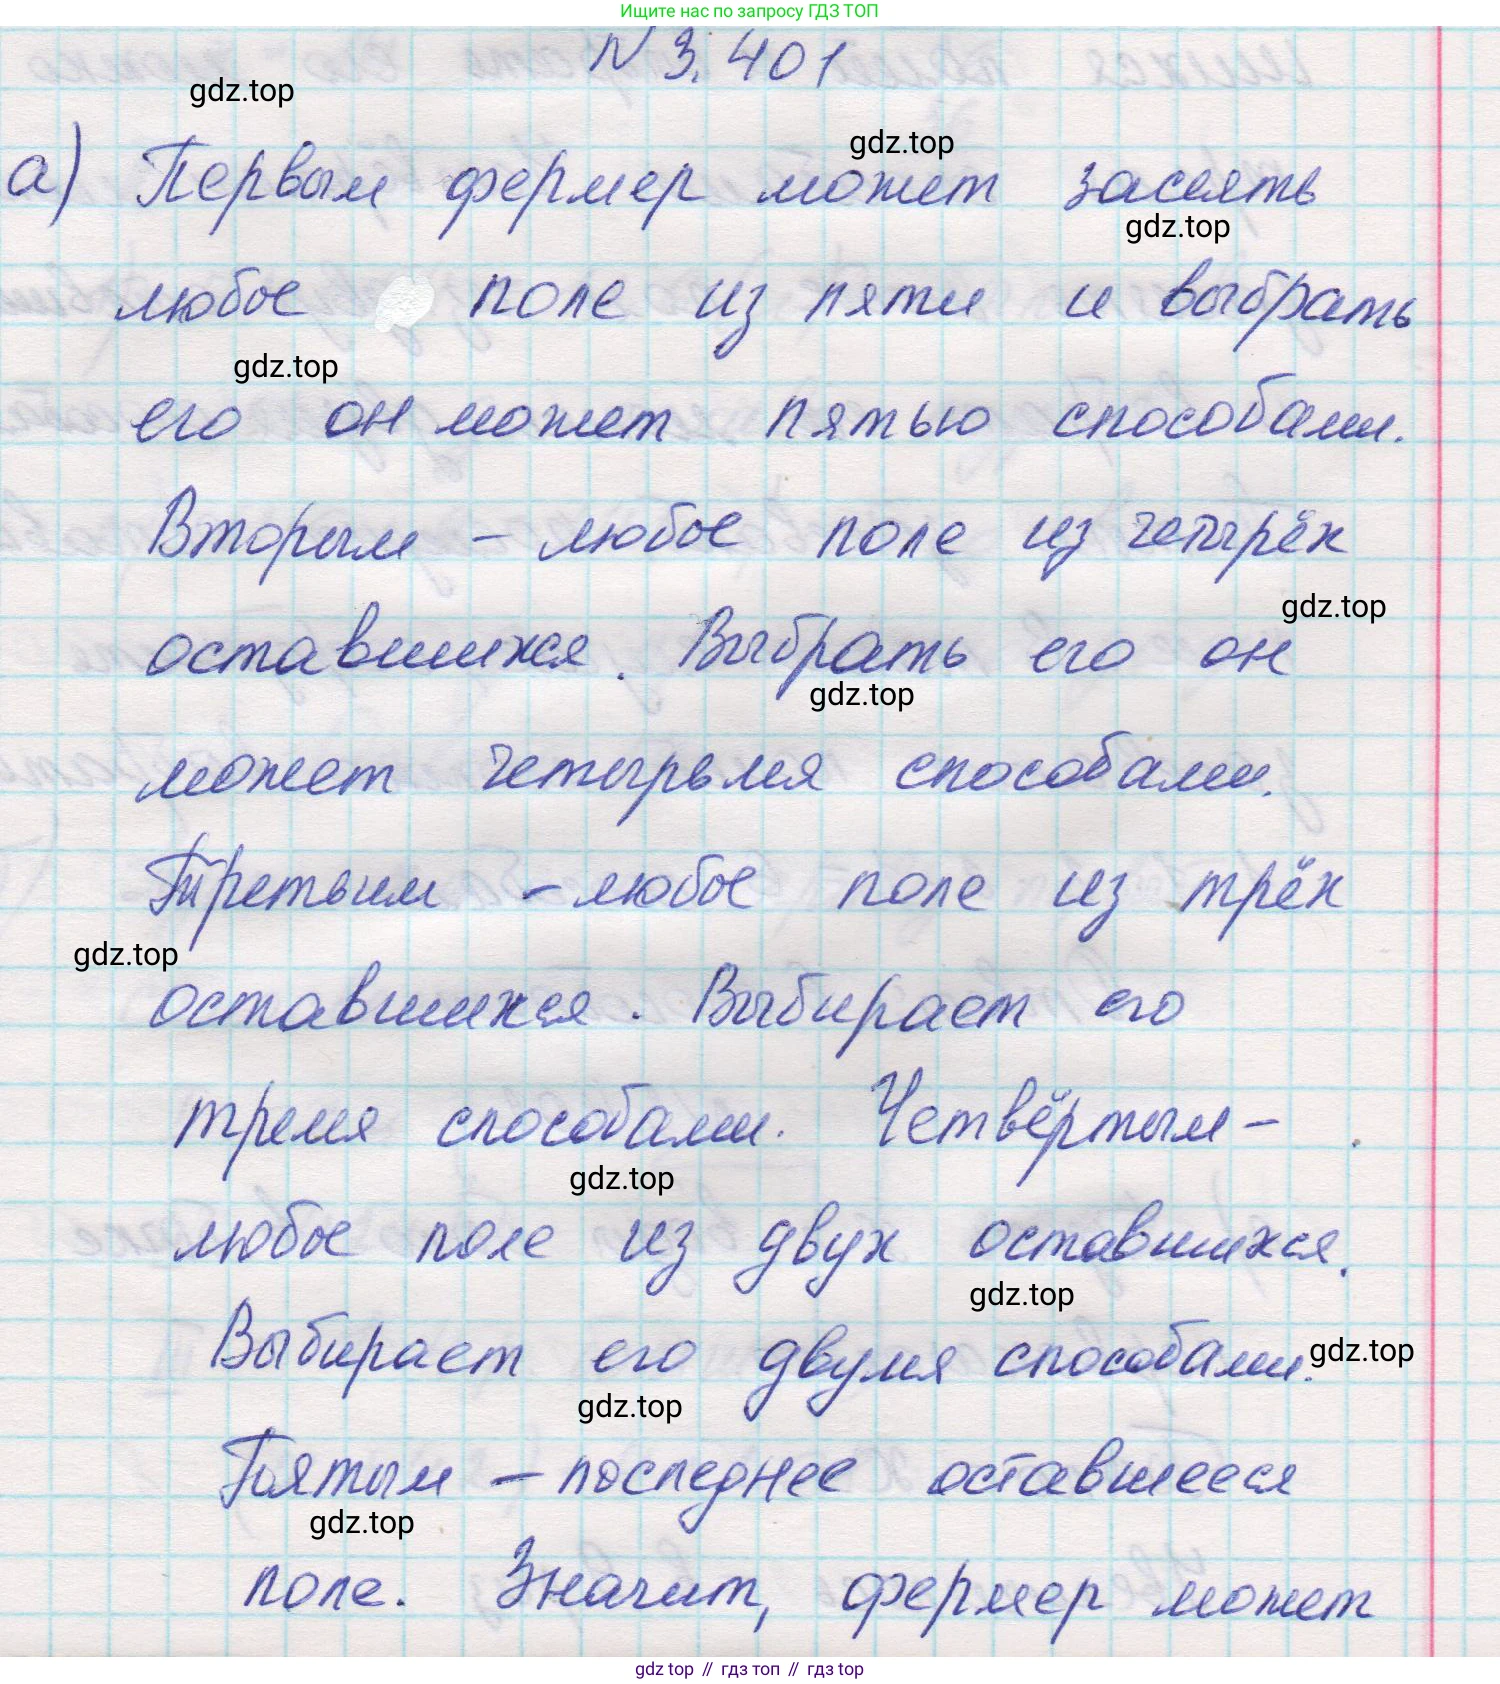 Ищите нас по запросу ГДЗ ТОП
N 3.401
gdz.top
gdz.top
а) Первым фермер может засеять
gdz.top
любое поле из пяти и выбрать
gdz.top
его он может пятью способами.
Вторым – любое поле из четырёх
gdz.top
оставшихся. Выбрать его он
gdz.top
может четырьмя способами.
Третьим – любое поле из трёх
gdz.top
оставшихся. Выбирает его
тремя способами. Четвёртым –
gdz.top
любое поле из двух оставшихся.
gdz.top
Выбирает его двумя способами.
gdz.top
gdz.top
Пятым – последнее оставшееся
gdz.top
поле. Значит, фермер может
gdz top // гдз топ // гдз top